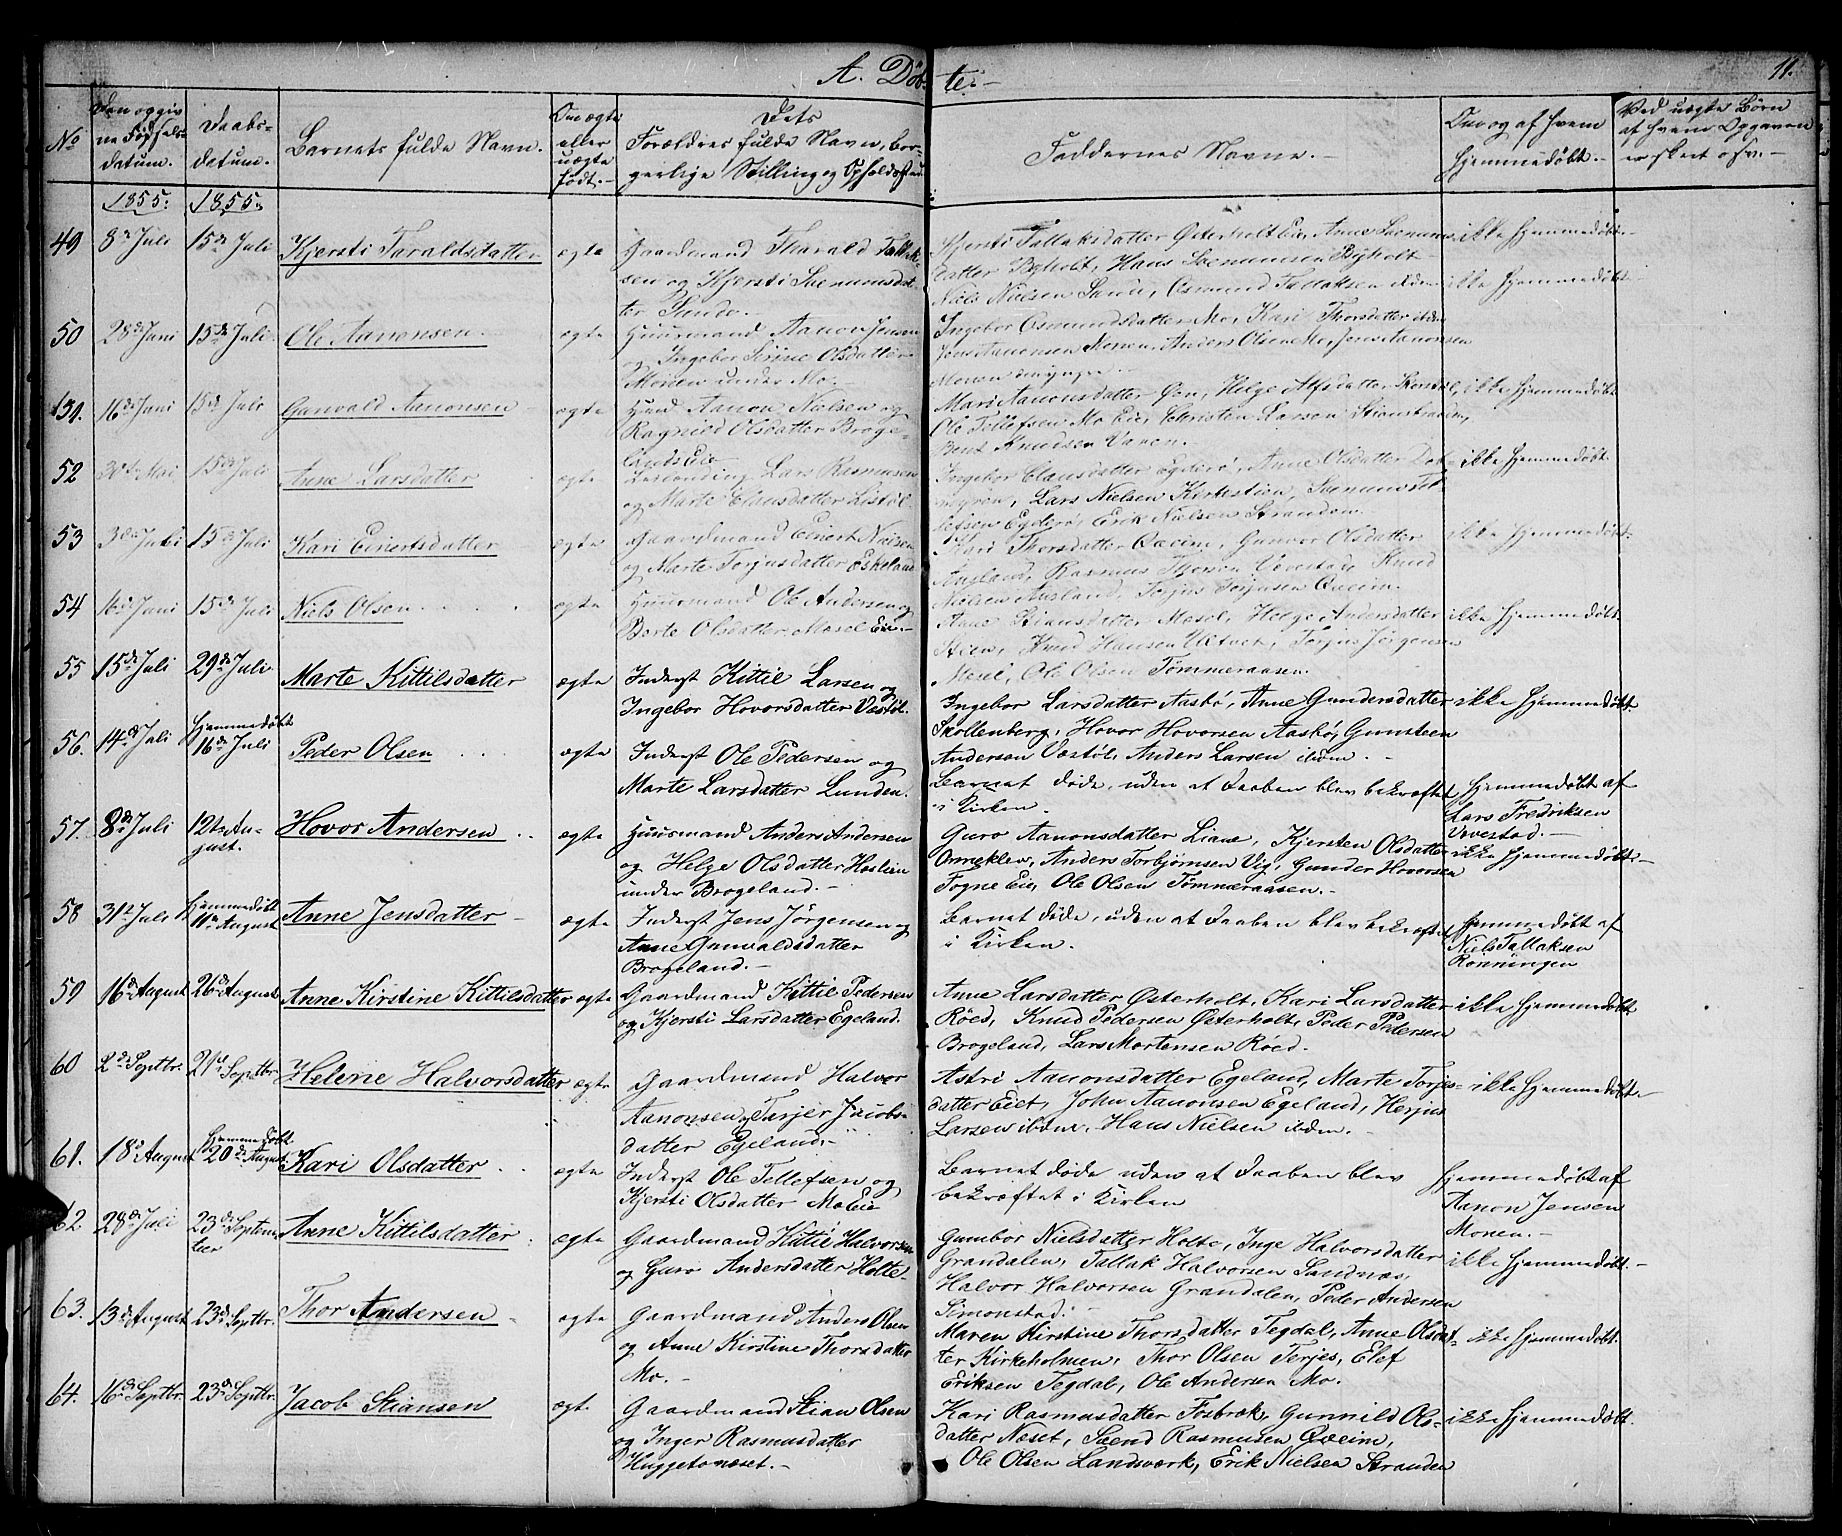 A. Döb-
te.-
11.
No
Den opgiv
ne Fødsels
datum.
Daabs-
datum.
Barnets fulde Navn.
Om ægte
eller
uægte
født.-
Dets
Forældres fulde Navn, bor-
gerlige Stilling og Opholdssted
Faddernes Navne.-
Om og af hvem
hjemmedøbt.-
Ved uægte Børn
af hvem Opgaven
er skeet o.s.v.-
1855.
1855.
49
8de Juli
15de Juli
Kjersti Taraldsdatter
ægte
Gaardmand Tharald Tallak-
sen og Kjersti Sørensdat-
ter Sunde.-
Kjersti Tallaksdatter Østerholt Eie, Anne
datter Byholt, Hans Byholt
Niels Nielsen Sunde, Osmund Tallaksen ibden
ikke hjemmedøbt.
ikke hjemmedøbt
50
28de Juni
15de Juli
Ole Aanonsen.
ægte
Huusmand Aanon Jensen
og Ingebor Serine Olsdatter
Monen under Mo.-
Ingebor Osmundsdatter Mo, Kari Thorsdatter ibden
Jens Aanonsen Monen, Anders Olsen Mo, Jens Aanonsen
Monen
51.
16de Juni
15de Juli
Gunvald Aanonsen
ægte
Aanon Nielsen og
Ragnild Olsdatter Broge-
lands Eie
Mari Aanonsdatter Øen, Helge Alfsdatter
Ole Tellefsen Mo Eie, Christen Larsen
Bent Knudsen
ikke hjemmedøbt
52
30te Mai
15de Juli
Anne Larsdatter
ægte
Lars Rasmusen
og Marte Clausdatter Listøl.
Ingebor Clausdatter Egderö, Anne Olsdatter
Lars Nielsen
Egderö, Erik Nielsen Stranden.
ikke hjemmedøbt
53
3de Juli
15de Juli
Kari Einertsdatter
ægte
Gaardmand Einert Nielsen
og Marte Torjusdatter Eskeland
Kari Thorsdatter Qveim, Gunvor Olsdatter
Rasmus Vevestad, Knud
Nielsen Torjus Torjusen Qveim.
ikke hjemmedøbt.
54
16de Juni
15de Juli
Niels Olsen
ægte
Huusmand Ole Andersen og
Berte Olsdatter Mesel Eie.-
Anne Stiansdatter Mesel, Helge Andersdatter
Knud Hansen Torjus Jørgensen
Mesel, Ole Olsen Tømmeraasen.
ikke hjemmedøbt
55
15de Juli
29de Juli
Marte Kittilsdatter
ægte
Inderst Kittil Larsen og
Ingebor Hovorsdatter Vestøl.
Ingebor Larsdatter Aasbö, Anne Gundersdatter
Skollenberg, Hovor Hovorsen Aasbö, Gunsteen
Andersen Vestöl, Anders Larsen ibden.
ikke hjemmedøbt
56.
14de Juli
hjemmedøbt
16de Juli
Peder Olsen
ægte
Inderst Ole Pedersen og
Marte Larsdatter Lunden.
Barnet døde, uden at Daaben blev bekræftet
i Kirken.
hjemmedøbt af
Lars Fredriksen
Vevestad.-
57.
8de Juli
12te Au-
gust.
Hovor Andersen
ægte
Huusmand Anders Andersen
og Helge Olsdatter Haslien
under Brogeland.-
Guro Aanonsdatter Liane, Kjersten Olsdatter
Omreklev, Anders Torbjørnsen Vig, Gunder Hovorsen
Fogne Eie, Ole Olsen Tømmeraasen.-
ikke hjemmedøbt.
58
31te Juli
hjemmedøbt
11te August
Anne Jensdatter
ægte
Inderst Jens Jörgensen og
Anne Gunvaldsdatter
Brogeland.-
Barnet døde, uden at Daaben blev bekræftet
i Kirken.
hjemmedøbt af
Niels Tallaksen
Rønningen
59
16de August
26de August
Anne Kirstine Kittilsdatter
ægte
Gaardmand Kittil Pedersen
og Kjersti Larsdatter Egeland.
Anne Larsdatter Østerholt, Kari Larsdatter
Röed, Knud Pedersen Østerholt, Peder Pedersen
Brogeland, Lars Mortensen Röed.
ikke hjemmedøbt
60
2de Septbr.
21de Septbr.
Helene Halvorsdatter
ægte
Gaardmand Halvor
Aanonsen, Tarjer Jacobs-
datter Egeland.
Astri Aanonsdatter Egeland, Marte Torjes-
datter Eiet, John Aanonsen Egeland, Herjus
Larsen ibden, Hans Nielsen ibden.
ikke hjemmedøbt.
61.
18de August
hjemmedøbt
20de August
Kari Olsdatter
ægte
Inderst Ole Tellefsen og
Kjersti Olsdatter Mo Eie
Barnet døde uden at Daaben blev
bekræftet i Kirken
hjemmedøbt af
Aanon Jensen
Monen.-
62
28de Juli
23de Septem-
ber
Anne Kittilsdatter
ægte
Gaardmand Kittil Halvorsen
og Guro Andersdatter Holte-
Gumbor Nielsdatter Holte, Inge Halvorsdatter
Grandalen, Tallak Halvorsen Sandnæs,
Halvor Halvorsen Grandalen, Peder Andersen
Simonstad.
ikke hjemmedøbt.-
63.
13de August
23de Septbr.
Thor Andersen
ægte
Gaardmand Anders Olsen
og Anne Kirstine Thorsdatter
Mo.-
Maren Kirstine Thorsdatter Tegdal, Anne Olsdat-
ter Kirkeholmen, Thor Olsen Terjes, Elef
Eriksen Tegdal, Ole Andersen Mo.
ikke hjemmedøbt.
64.
16de Septbr.
23de Septbr.
Jacob Stiansen
ægte
Gaardmand Stian Olsen
og Inger Rasmusdatter
Huggetonæset.-
Kari Rasmusdatter Fosbræk, Gunnild Ols-
datter Næset, Svend Rasmusen Qveim,
Ole Olsen Landsverk, Erik Nielsen Stranden
ikke hjemmedøbt.